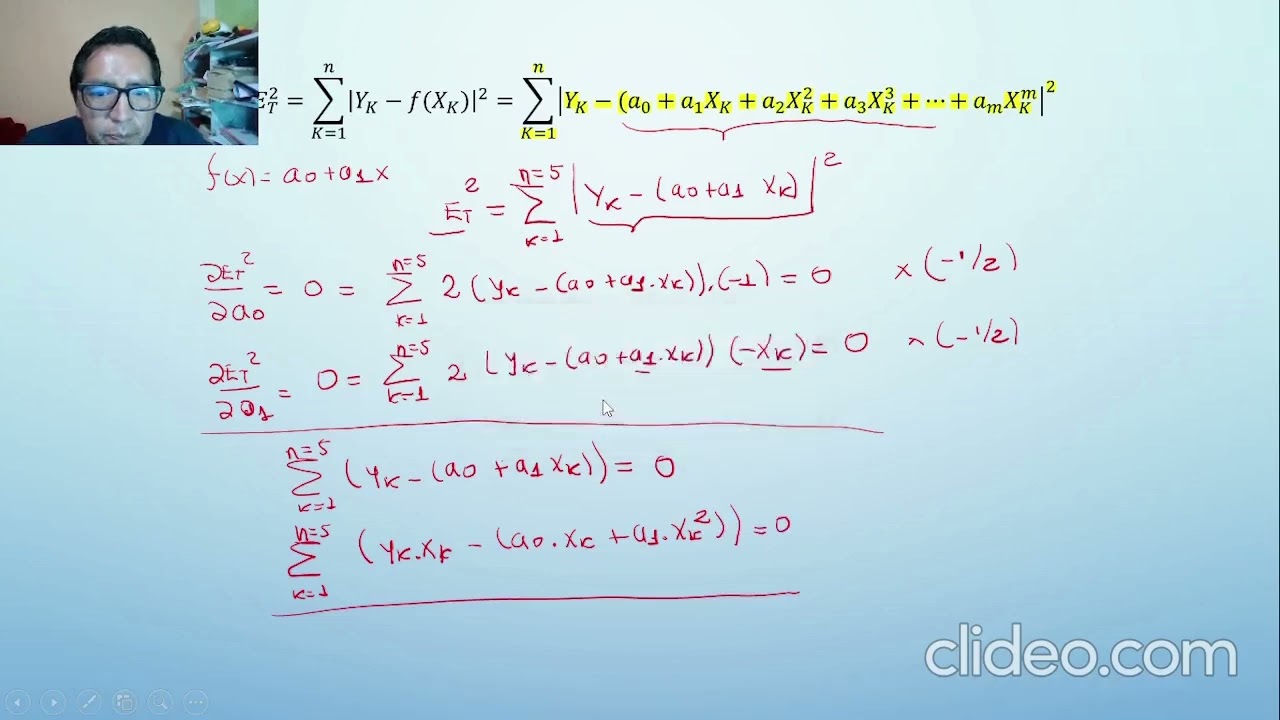 E_T^2 = \sum_{K=1}^{n} |Y_K − f(X_K)|^2 = \sum_{K=1}^{n} |Y_K − (a_0 + a_1X_K + a_2X_K^2 + a_3X_K^3 + ⋯ + a_mX_K^m|^2
f(x) = a0 + a1x
E_T^2 = \sum_{k=1}^{n=5} |y_k − (a0 + a1 x_k)|^2
∂E_T^2/∂a0 = 0 = \sum_{k=1}^{n=5} 2(y_k − (a0 + a1.x_k)).(−1) = 0 x(−1/2)
∂E_T^2/∂a1 = 0 = \sum_{k=1}^{n=5} 2(y_k − (a0 + a1.x_k))(−x_k) = 0 x(−1/2)
\sum_{k=1}^{n=5} (y_k − (a0 + a1x_k)) = 0
\sum_{k=1}^{n=5} (y_k.x_k − (a0.x_k + a1.x_k^2)) = 0
clideo.com